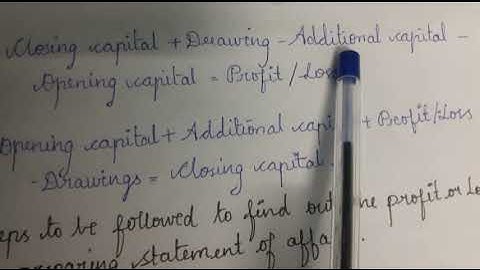 Closing capital + Drawing - Additional capital -
Opening capital = Profit / Loss
Opening capital + Additional capi + Profit/Loss
- Drawings = Closing capital.
eps to be followed to find out he profit or Lo
eparing statement of affa